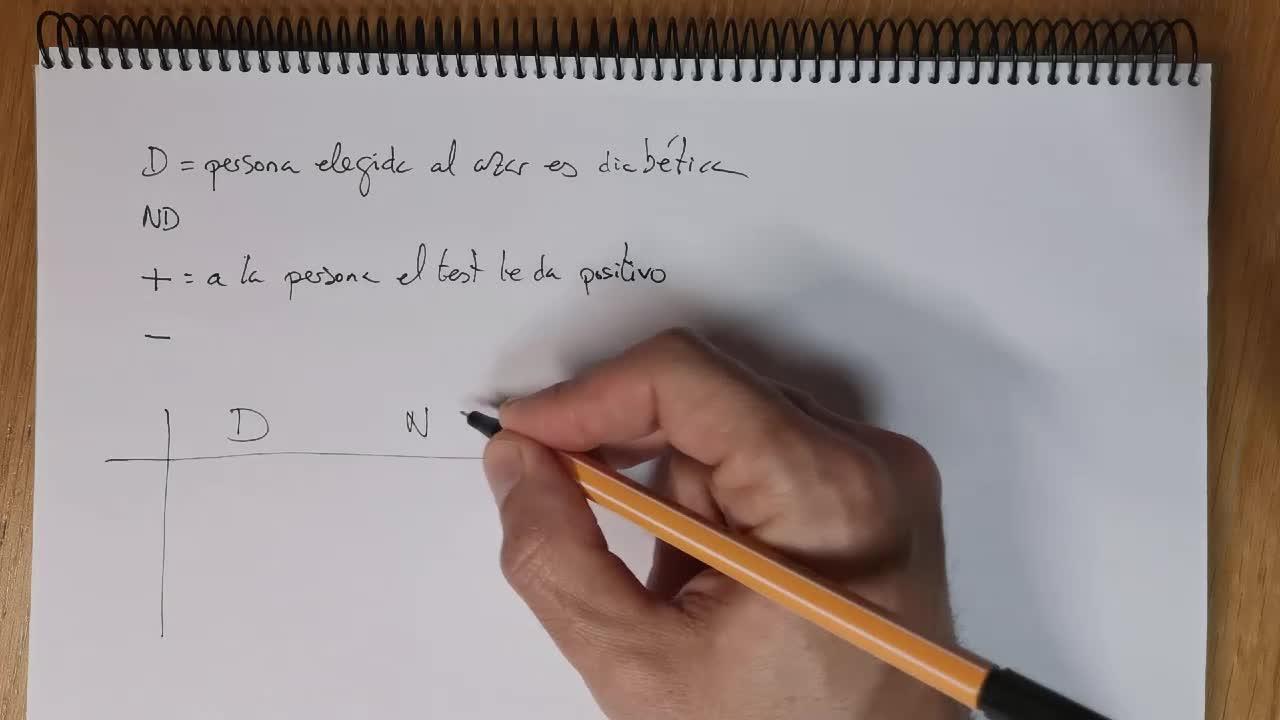 D = persona elegida al azar es diabética
ND
+ = a la persona el test le da positivo
−
D N